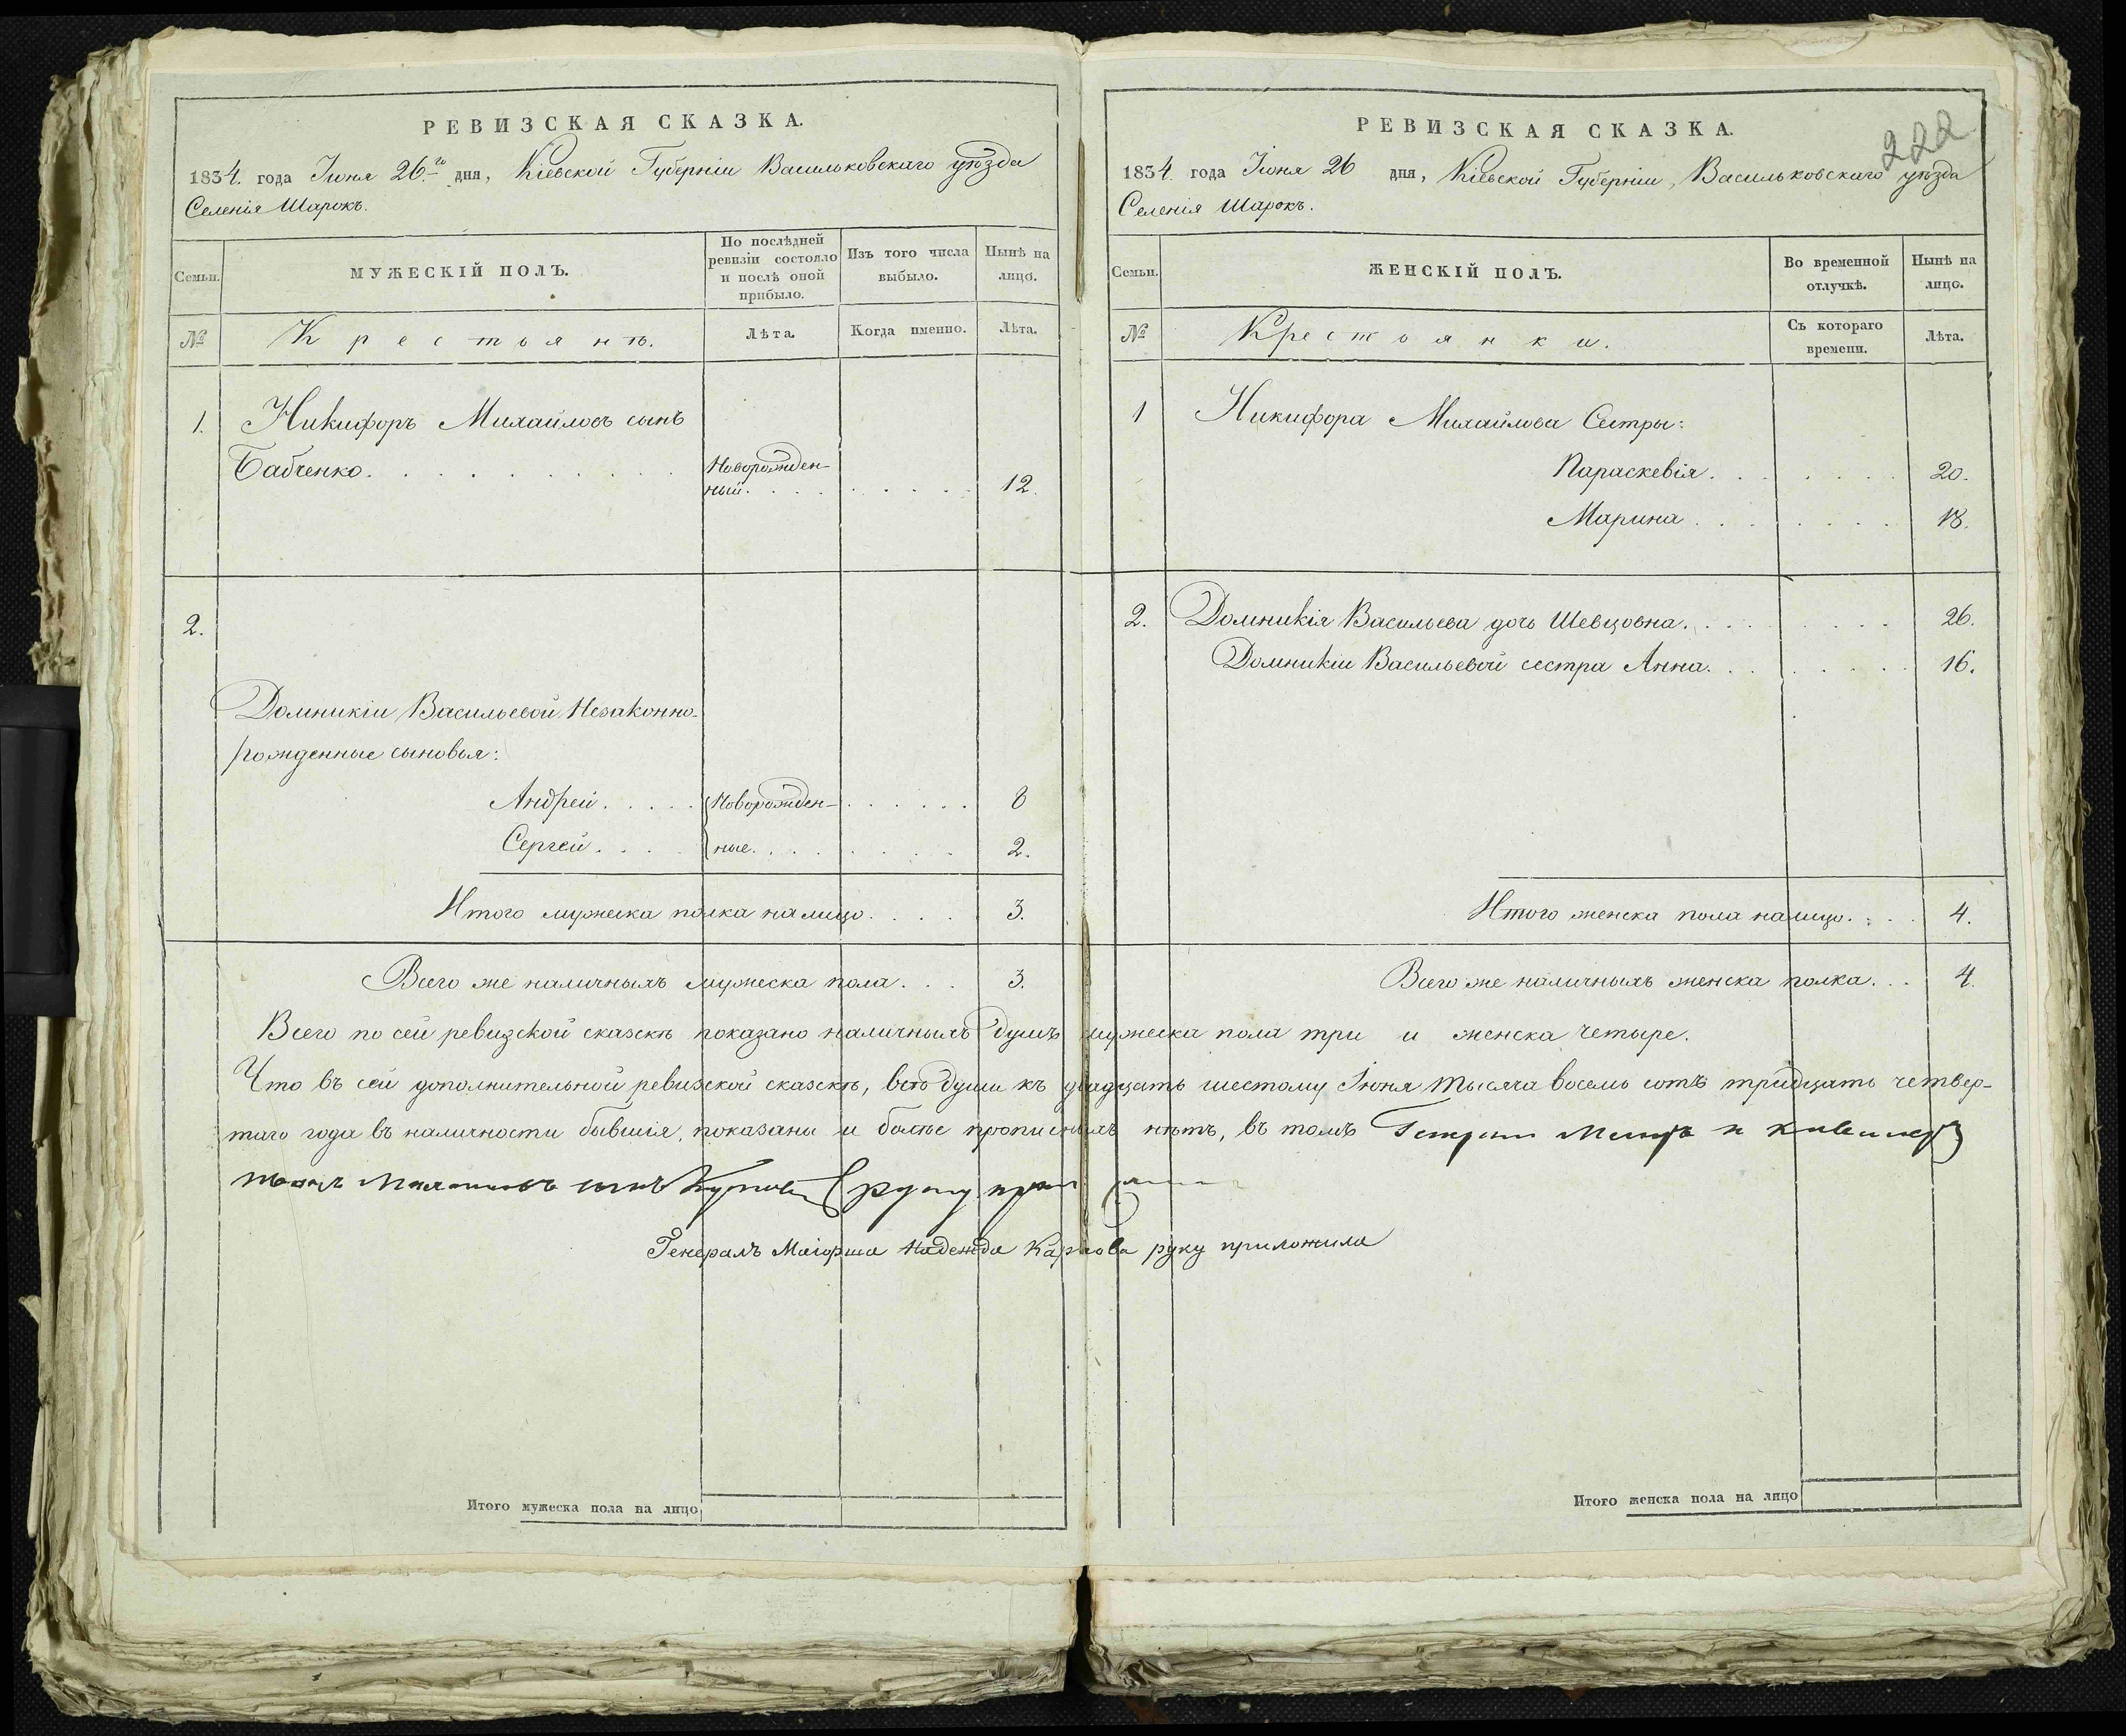 РЕВИЗСКАЯ СКАЗКА.
1834. года Іюня 26.го дня, Кіевской Губерніи Васильковскаго уѣзда
Селенія Шарокъ.
Семьи.
МУЖЕСКІЙ ПОЛЪ.
По послѣдней
ревизіи состояло
и послѣ оной
прибыло.
Изъ того числа
выбыло.
Нынѣ на
лицо.
№
Крестьянъ.
Лѣта.
Когда именно.
Лѣта.
1. Никифоръ Михайловъ сынъ
Бабченко. Новорожден-
ный. 12.
2.
Домникіи Васильевой Незаконно-
рожденные сыновья:
Андрей. Новорожден- 8
Сергей. ные. 2.
Итого мужеска полка налицо. 3.
Всего же наличныхъ мужеска пола. 3.
РЕВИЗСКАЯ СКАЗКА.
222
1834. года Іюня 26 дня, Кіевской Губерніи, Васильковскаго уѣзда
Селенія Шарокъ.
Семьи.
ЖЕНСКІЙ ПОЛЪ.
Во временной
отлучкѣ.
Нынѣ на
лицо.
№
Крестьянки.
Съ котораго
времени.
Лѣта.
1 Никифора Михайлова Сестры:
Параскевія. 20.
Марина. 18.
2. Домникія Васильева дочь Шевцовна. 26.
Домникіи Васильевой сестра Анна. 16.
Итого женска пола налицо. 4.
Всего же наличныхъ женска полка. 4.
Всего по сей ревизской сказкѣ показано наличныхъ душъ мужеска пола три и женска четыре.
Что въ сей дополнительной ревизской сказкѣ, всѣ души къ двадцать шестому Іюня тысяча восемь сотъ тридцать четвер-
таго года въ наличности бывшія, показаны и болѣе прописныхъ нѣтъ, въ томъ
сынъ руку
Генералъ Маіорша Надежда руку приложила
Итого мужеска пола на лицо
Итого женска пола на лицо